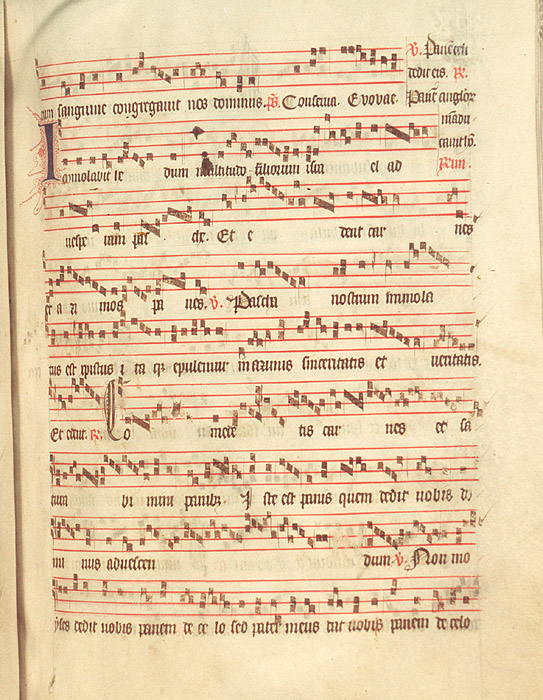 num sanguine congregauit nos dominus. ps. Conserua. Evovae.
V. Panem celi
dedit eis. R.
Pane angelor
manducauit
Immolabit
dum multitudo filiorum isra el ad
uespe ram pas che. Et e dent car nes
et a zi mos pa nes. V. Pascha nostrum immola
tus est xpistus i ta qz epulemur in azimis sinceritatis et ueritatis.
Et edent. R. Co mede tis car nes et sa
tura bi mini panibz I ste est panis quem dedit uobis do
mi nus aduescen dum. V. Non mo
yses dedit uobis panem de ce lo sed pater meus dat uobis panem de celo